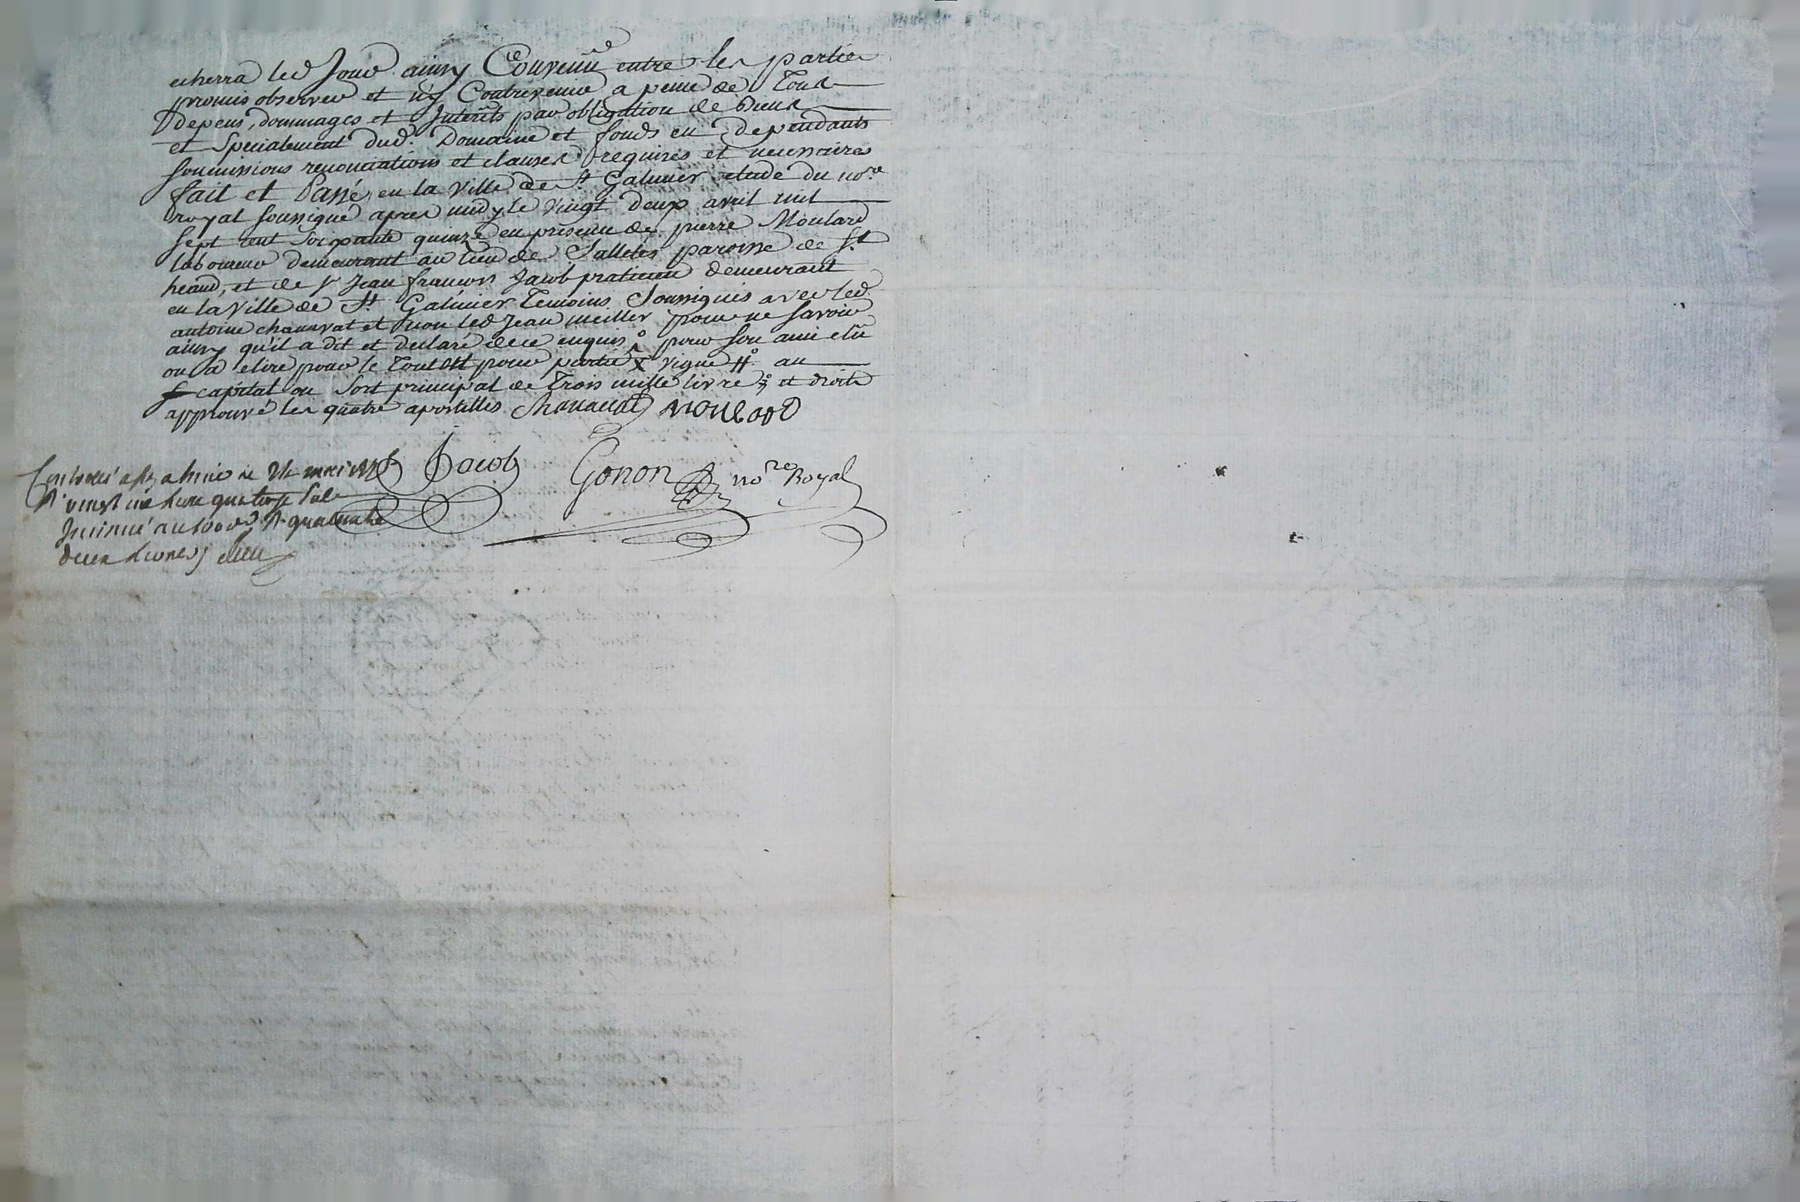 echerra led. Jour ainsy Convenue entre les parties
promis observer et n'y Contrevenir a peine de Tous
Depens, dommages et Interêts par obligation de biens
et Specialement dud. Domaine et fonds en dependants
Soumissions renonciations et clauses requises et necessaires
fait et Passé en la Ville de St. Galmier etude du nore
royal soussigné apres midy le vingt deux avril mil
sept cent soixante quinze en presence de pierre Moulard
laboureur demeurant au lieu de Salletes paroisse de St.
heand, et de Sr Jean francois Jacob praticien demeurant
en la Ville de St. Galmier Temoins Soussignés avec led.
antoine chanavat et non led Jean meiller pour ne savoir
ainsy qu'il a dit et declaré de ce enquis pour son amie elû
ou a elire pour le Tout pour partie vigne au
capital ou sort principal de Trois mille livres et droits
approuvé les quatre apostilles Chanavat Moulard
Jacob Gonon nore Royal
Controllé a St galmier le
Rt vingt une livre quatorze Sols
Insinué au 100e d. Rt quarante
deux livres